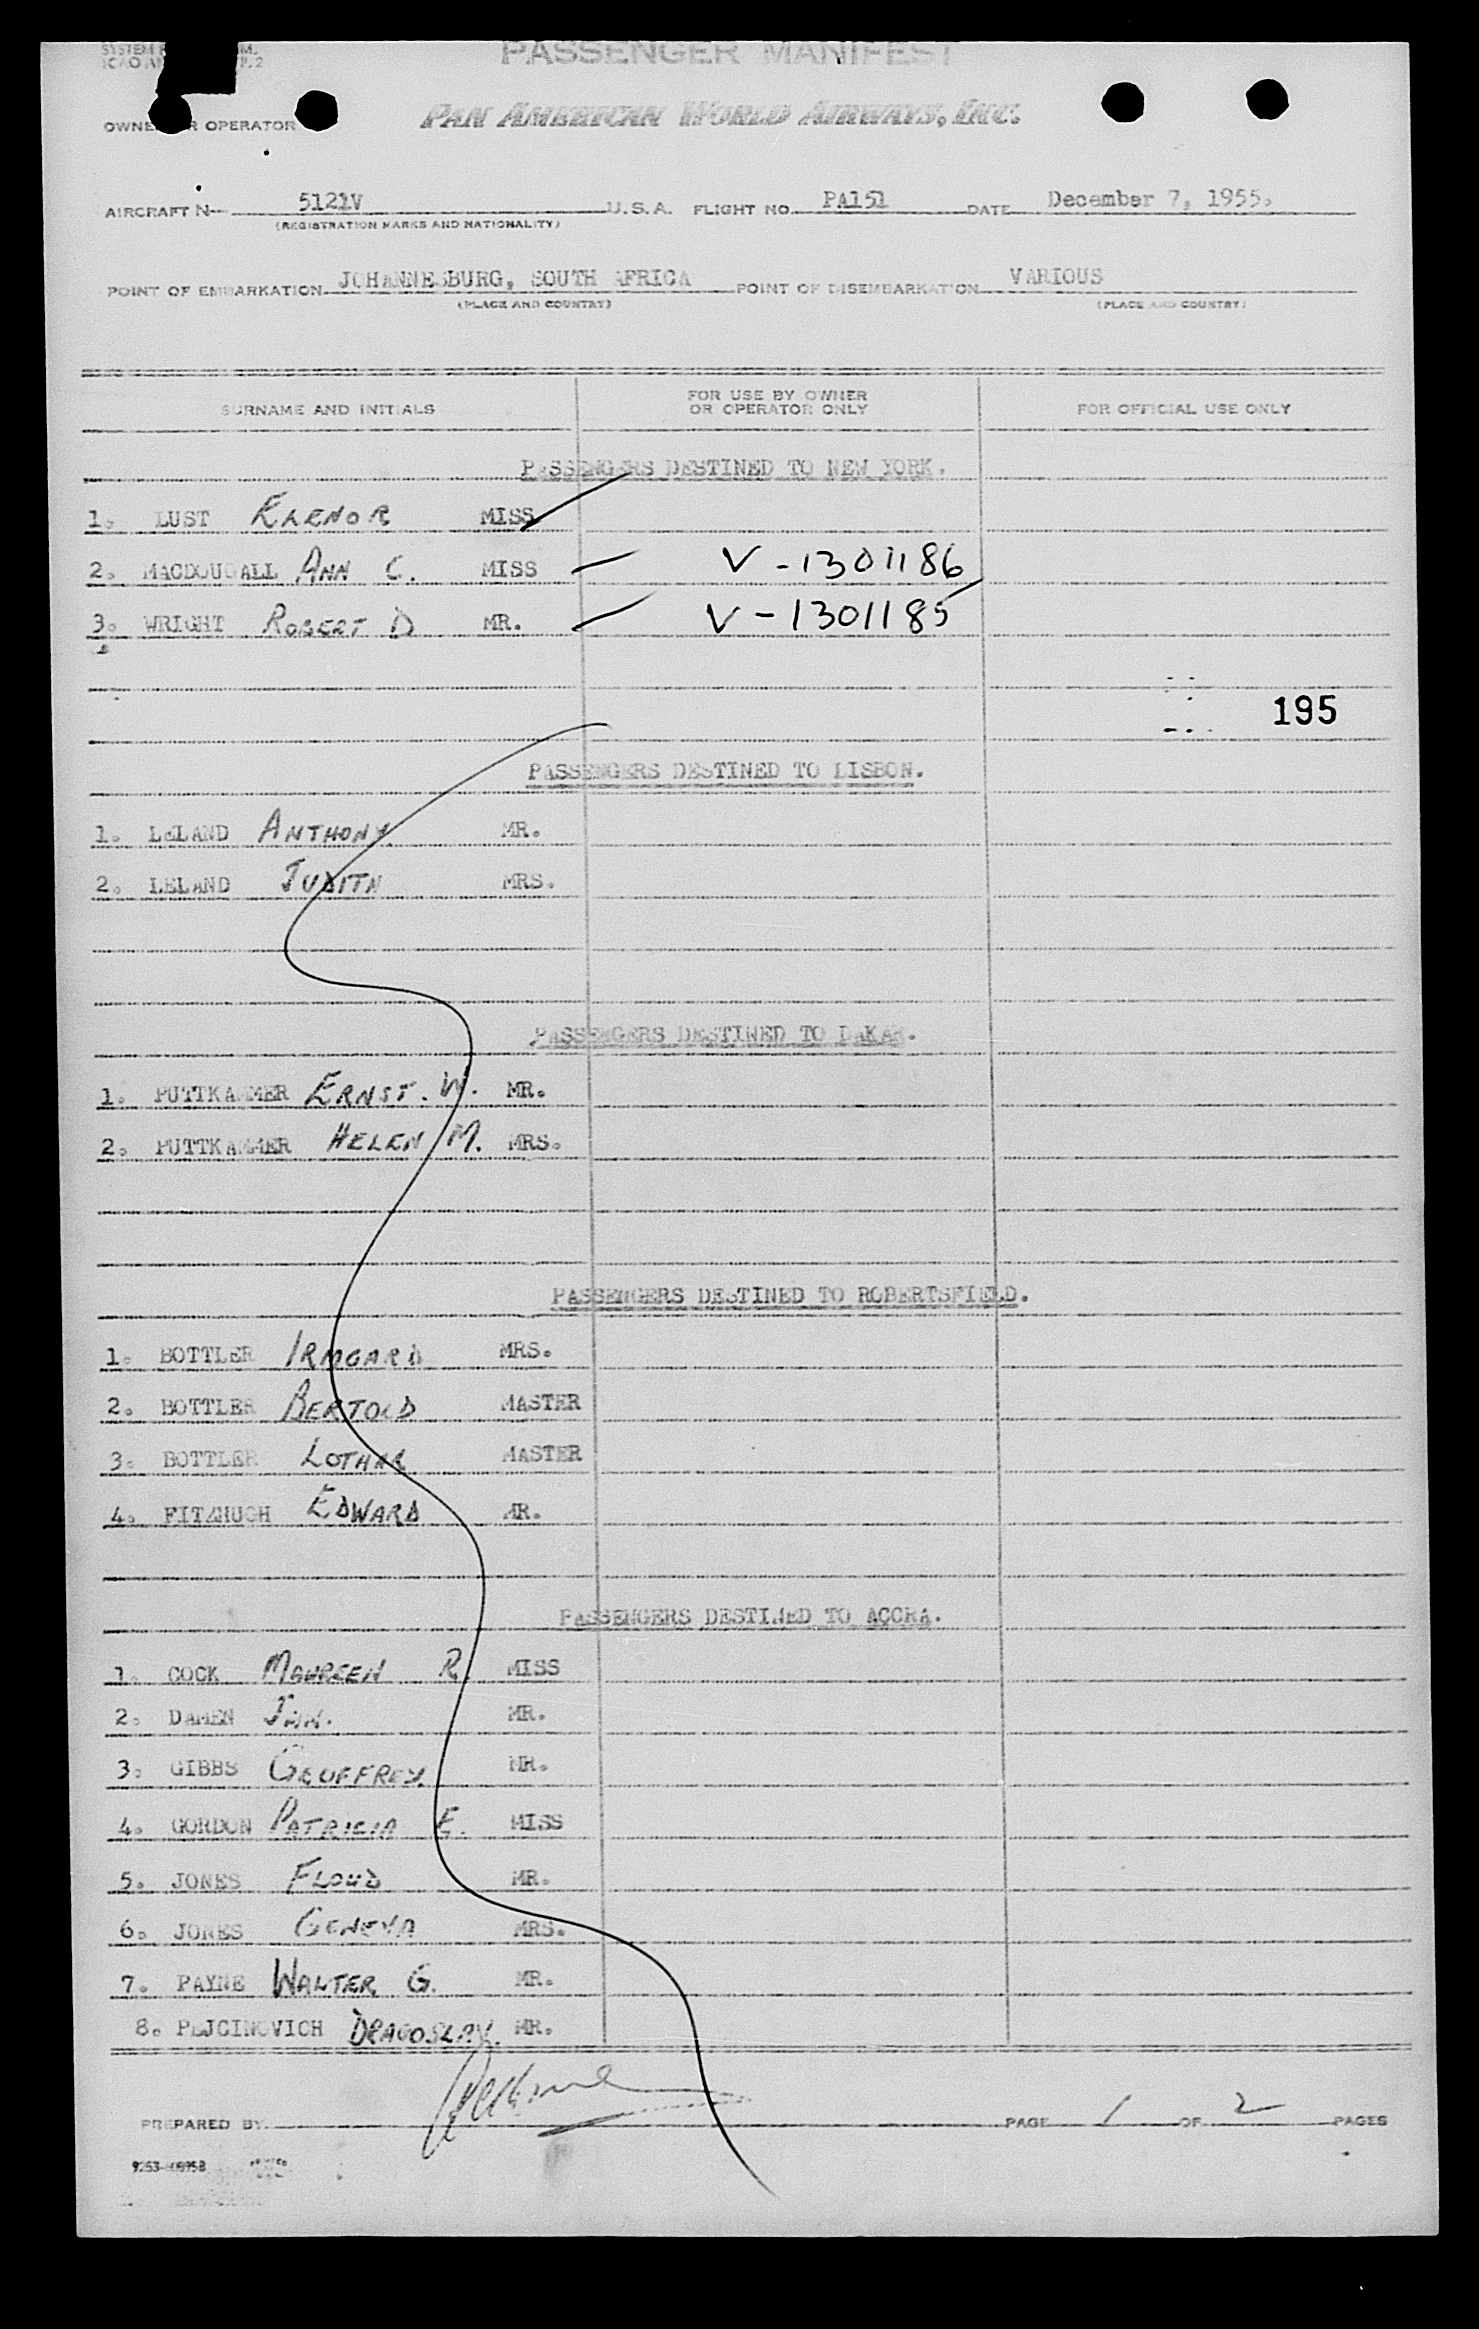 PASSENGER MANIFEST
OWNER OR OPERATOR PAN AMERICAN WORLD AIRWAYS, INC.
AIRCRAFT N- 5121V U.S.A. FLIGHT NO. PA151 DATE December 7, 1955.
(REGISTRATION MARKS AND NATIONALITY)
POINT OF EMBARKATION JOHANNESBURG, SOUTH AFRICA POINT OF DISEMBARKATION VARIOUS
(PLACE AND COUNTRY) (PLACE AND COUNTRY)
SURNAME AND INITIALS FOR USE BY OWNER OR OPERATOR ONLY FOR OFFICIAL USE ONLY
PASSENGERS DESTINED TO NEW YORK.
1. LUST ELENOR MISS
2. MACDOUGALL ANN C. MISS V-1301186
3. WRIGHT ROBERT D MR. V-1301185
195
PASSENGERS DESTINED TO LISBON.
1. LELAND ANTHONY MR.
2. LELAND JUDITH MRS.
PASSENGERS DESTINED TO DAKAR.
1. PUTTKAMMER ERNST. W. MR.
2. PUTTKAMMER HELEN M. MRS.
PASSENGERS DESTINED TO ROBERTSFIELD.
1. BOTTLER IRMGARD MRS.
2. BOTTLER BERTOLD MASTER
3. BOTTLER LOTHAR MASTER
4. FITZHUGH EDWARD MR.
PASSENGERS DESTINED TO ACCRA.
1. COCK MAUREEN R. MISS
2. DAMEN JAN. MR.
3. GIBBS GEOFFREY. MR.
4. GORDON PATRICIA E. MISS
5. JONES FLOYD MR.
6. JONES GENEVA MRS.
7. PAYNE WALTER G. MR.
8. PEJCINOVICH DRAGOSLAV. MR.
PREPARED BY PAGE 1 OF 2 PAGES